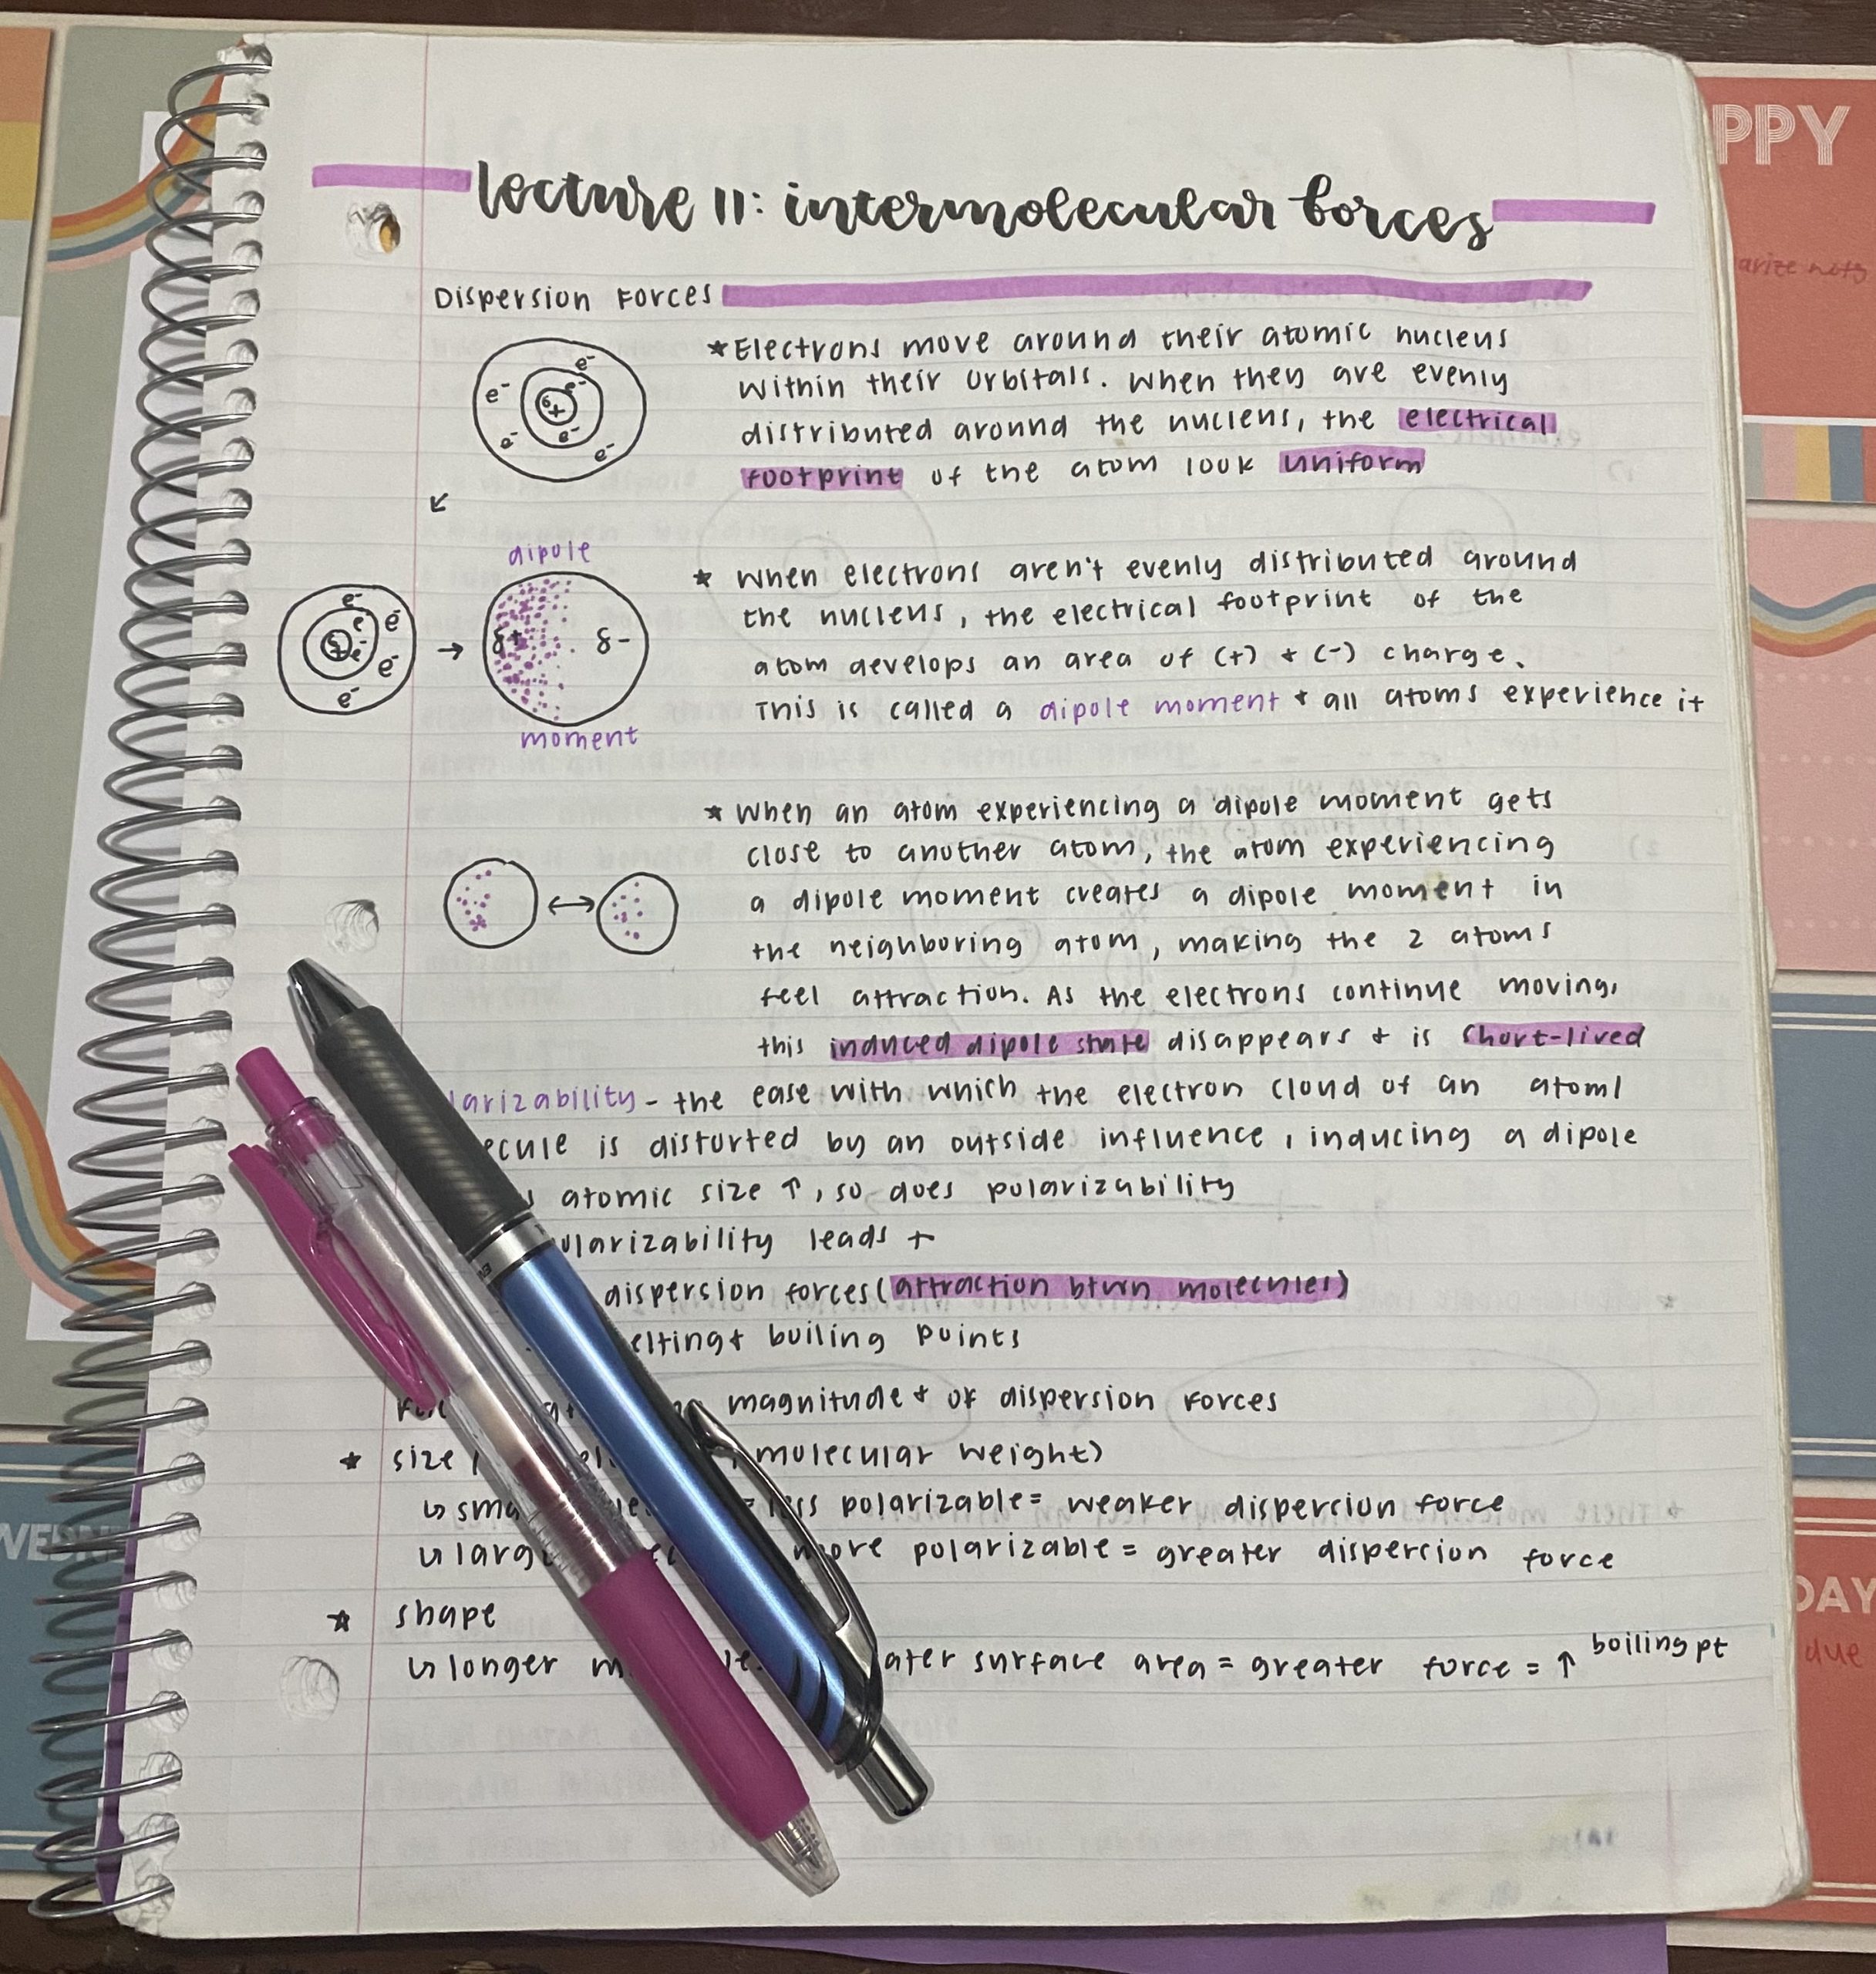 lecture 11: intermolecular forces
Dispersion Forces
*Electrons move around their atomic nucleus
within their orbitals. When they are evenly
distributed around the nucleus, the electrical
footprint of the atom look uniform
e- e- e- 6+ e- e- e-
↙
* When electrons aren't evenly distributed around
the nucleus, the electrical footprint of the
atom develops an area of (+) + (-) charge.
This is called a dipole moment + all atoms experience it
e- e- e- e- e-
→
dipole
δ+ δ-
moment
* When an atom experiencing a dipole moment gets
close to another atom, the atom experiencing
a dipole moment creates a dipole moment in
the neighboring atom, making the 2 atoms
feel attraction. As the electrons continue moving,
this induced dipole state disappears + is short-lived
↔
larizability - the ease with which the electron cloud of an atom/
ecule is distorted by an outside influence, inducing a dipole
atomic size ↑, so does polarizability
olarizability leads +
dispersion forces (attraction btwn molecules)
elting + boiling points
magnitude + of dispersion forces
* size molecular weight)
↳ sma = less polarizable = weaker dispersion force
↳ larg more polarizable = greater dispersion force
* shape
↳ longer m ater surface area = greater force = ↑ boiling pt
PPY
arize nots
WEDN
DAY
due